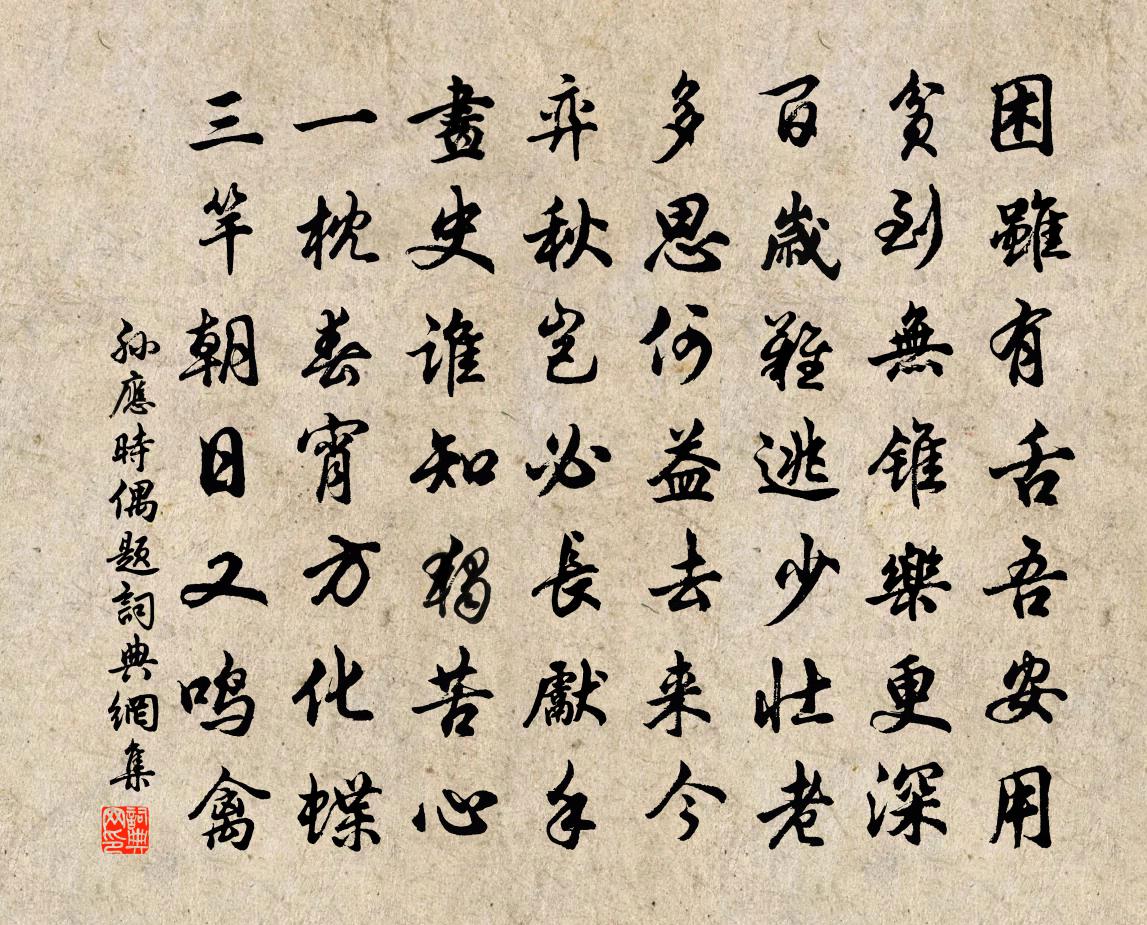 困雖有舌吾安用
貧到無錐樂更深
百歲難逃少壯老
多思何益去来今
弈秋豈必長獻手
畫史誰知獨苦心
一枕春宵方化蝶
三竿朝日又鸣禽
孙應時偶题詞典網集
詞典网印